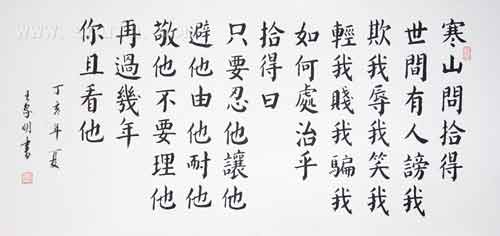 寒山問拾得
世間有人謗我
欺我辱我笑我
輕我賤我騙我
如何處治乎
拾得曰
只要忍他讓他
避他由他耐他
敬他不要理他
再過幾年
你且看他
丁亥年夏